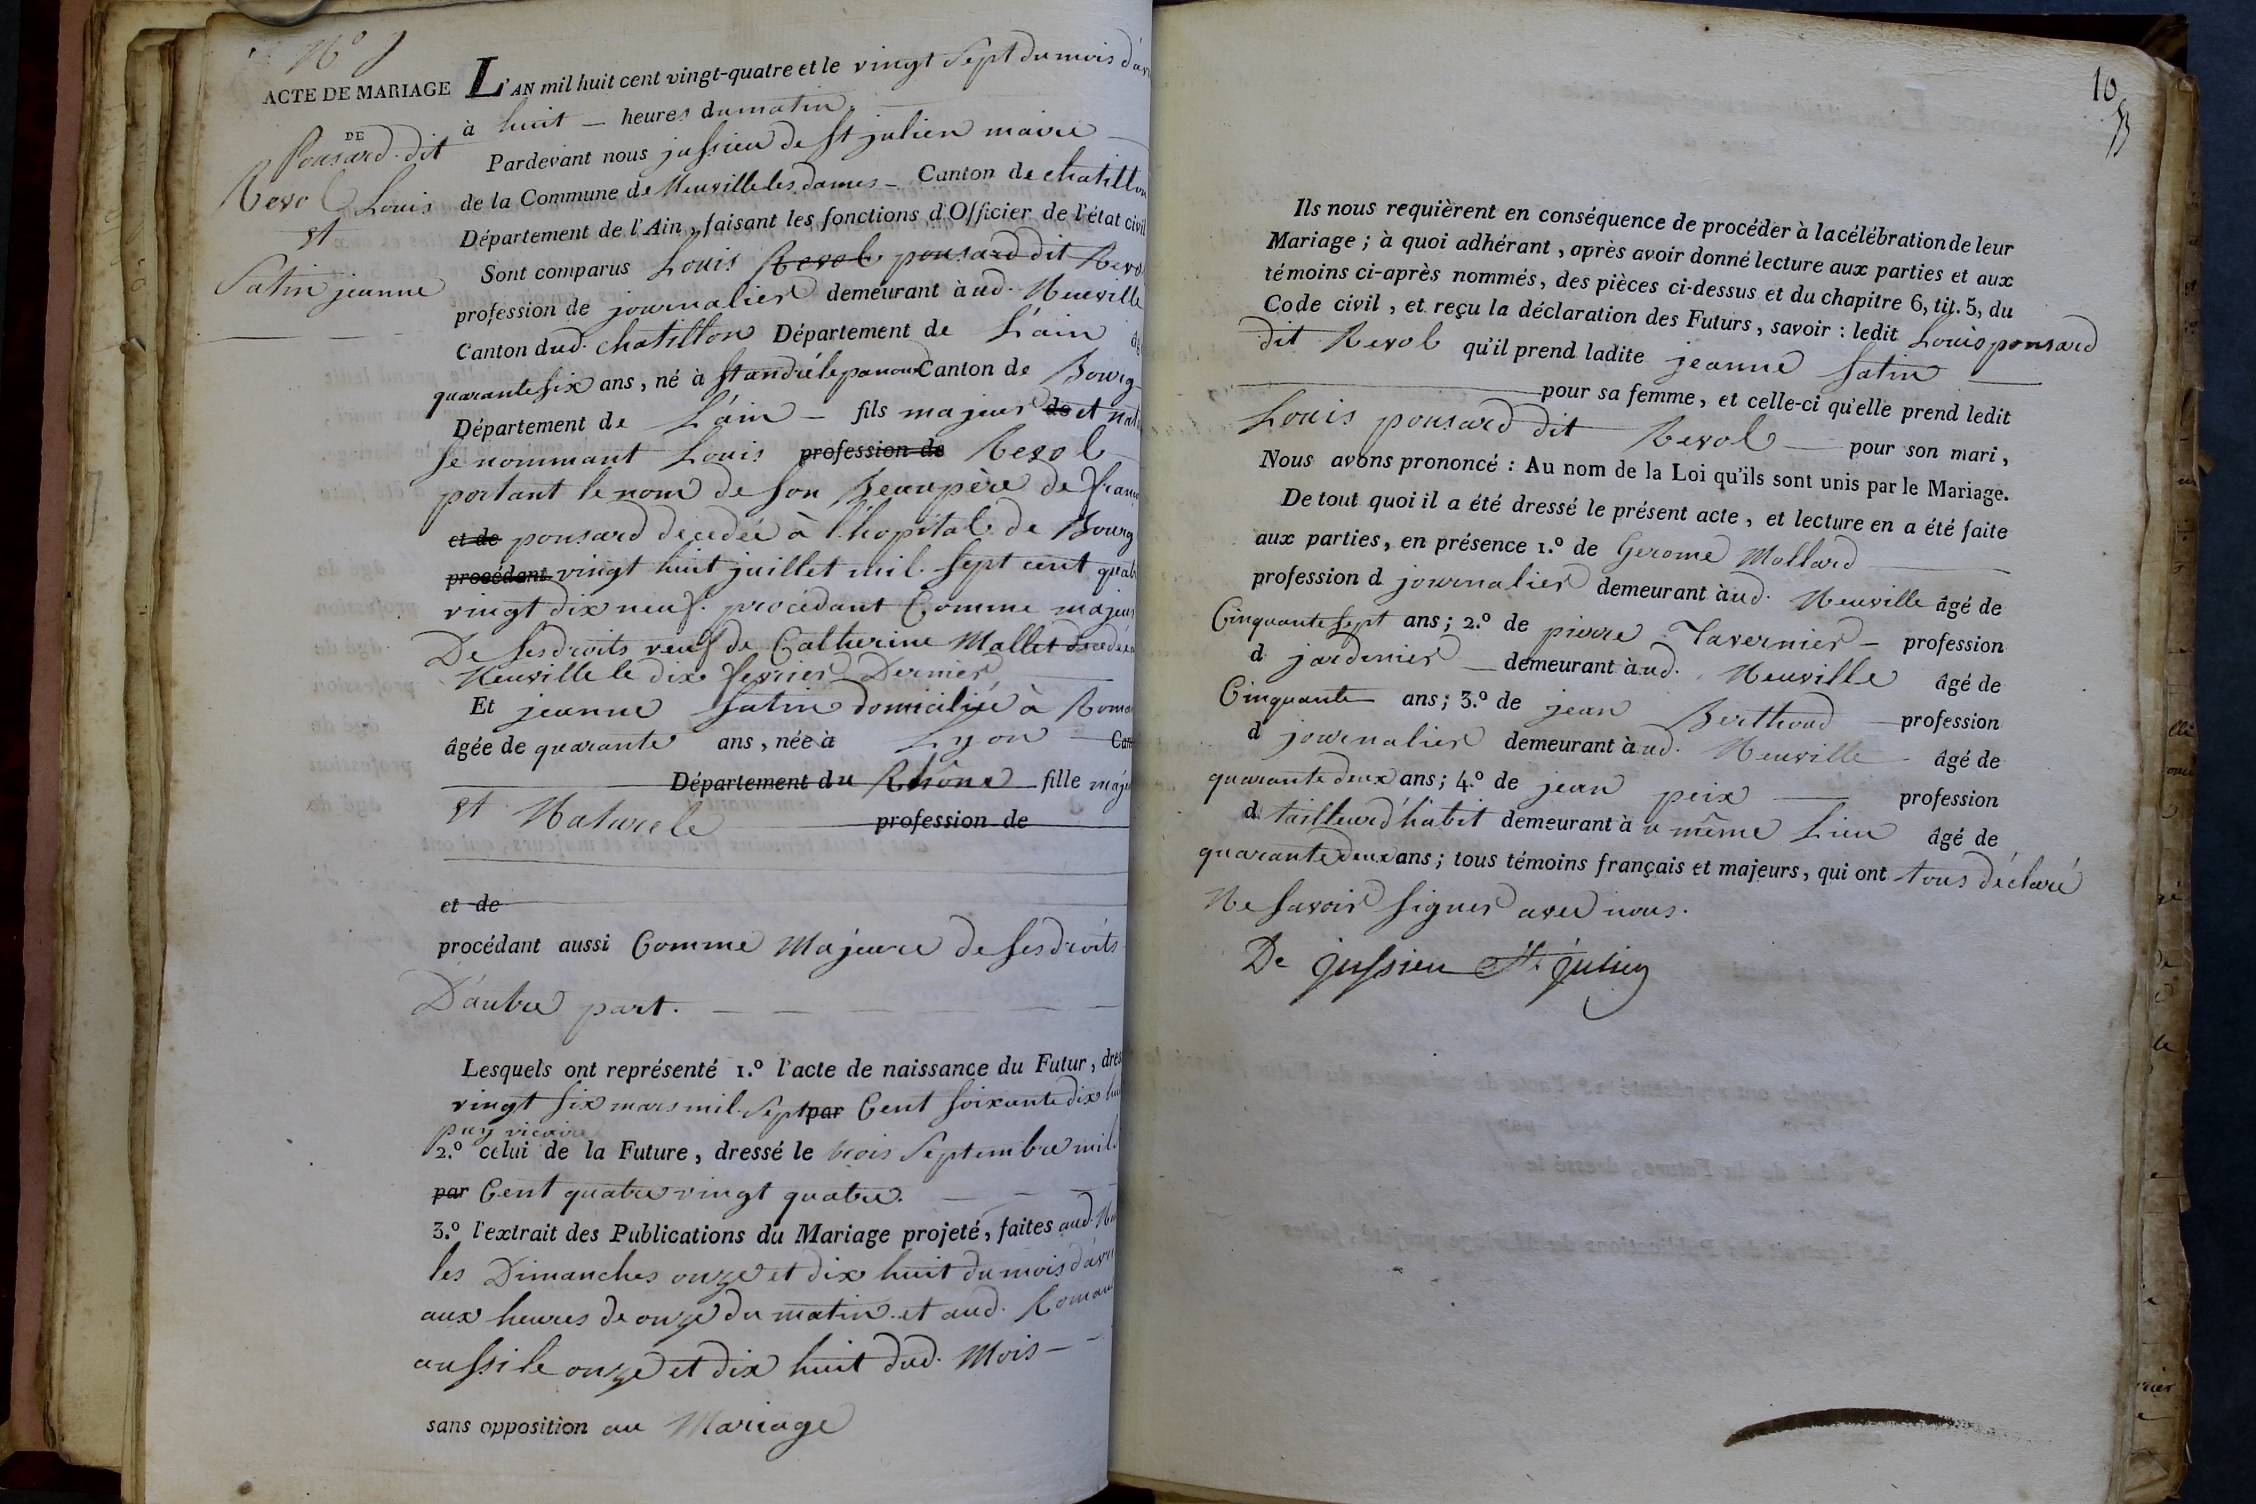 ACTE DE MARIAGE
DE
Ponsard dit
Revol Louis
et
Satin jeanne
L'AN mil huit cent vingt-quatre et le vingt Sept du mois d'av
à huit - heures du matin.
Pardevant nous jussieu de St julien maire
de la Commune de Neuville les dames - Canton de chatillon
Département de l'Ain, faisant les fonctions d'Officier de l'état civil
Sont comparus Louis Revol ponsard dit Revol
profession de journalier demeurant à ud. Neuville
Canton dud. chatillon Département de L'ain âg
quarante six ans, né à St andré le panoux Canton de Bourg
Département de L'ain - fils majeur de et nat
Se nommant Louis profession de Revol
portant le nom de son Beaupère de fran
et de ponsard decedée à l'hopital de Bourg
procédant vingt huit juillet mil sept cent quatr
vingt dix neuf. procedant Comme majeur
De ses droits veuf de Catherine Mallet decedée
Neuville le dix fevrier Dernier
Et jeanne Satin domiciliée à Roma
âgée de quarante ans, née à Lyon Can
Département du Rhône fille maje
et Naturele profession de
et de
procédant aussi Comme Majeure de ses droits
D'autre part.
Lesquels ont représenté 1.º l'acte de naissance du Futur, dres
vingt six mars mil sept par Cent soixante dix hui
puy vicaire
2.º celui de la Future, dressé le trois Septembre mil
par Cent quatre vingt quatre.
3.º l'extrait des Publications du Mariage projeté, faites aud. Neu
les Dimanches onze et dix huit du mois d'avri
aux heures de onze du matin et aud. Roman
aussi le onze et dix huit dud. Mois -
sans opposition au Mariage
10
Ils nous requièrent en conséquence de procéder à la célébration de leur
Mariage; à quoi adhérant, après avoir donné lecture aux parties et aux
témoins ci-après nommés, des pièces ci-dessus et du chapitre 6, tit. 5, du
Code civil, et reçu la déclaration des Futurs, savoir: ledit Louis ponsard
dit Revol qu'il prend ladite jeanne Satin
pour sa femme, et celle-ci qu'elle prend ledit
Louis ponsard dit Revol pour son mari,
Nous avons prononcé: Au nom de la Loi qu'ils sont unis par le Mariage.
De tout quoi il a été dressé le présent acte, et lecture en a été faite
aux parties, en présence 1.º de Gerome Mollard
profession d journalier demeurant à ud. Neuville âgé de
Cinquante sept ans; 2.º de pierre Tavernier - profession
d jardinier demeurant à ud. Neuville âgé de
Cinquante ans; 3.º de jean Berthoud profession
d journalier demeurant à ud. Neuville âgé de
quarante deux ans; 4.º de jean peix profession
d tailleur d'habit demeurant à u même Lieu âgé de
quarante deux ans; tous témoins français et majeurs, qui ont tous déclaré
Ne savoir signer avec nous.
De Jussieu St. Julien